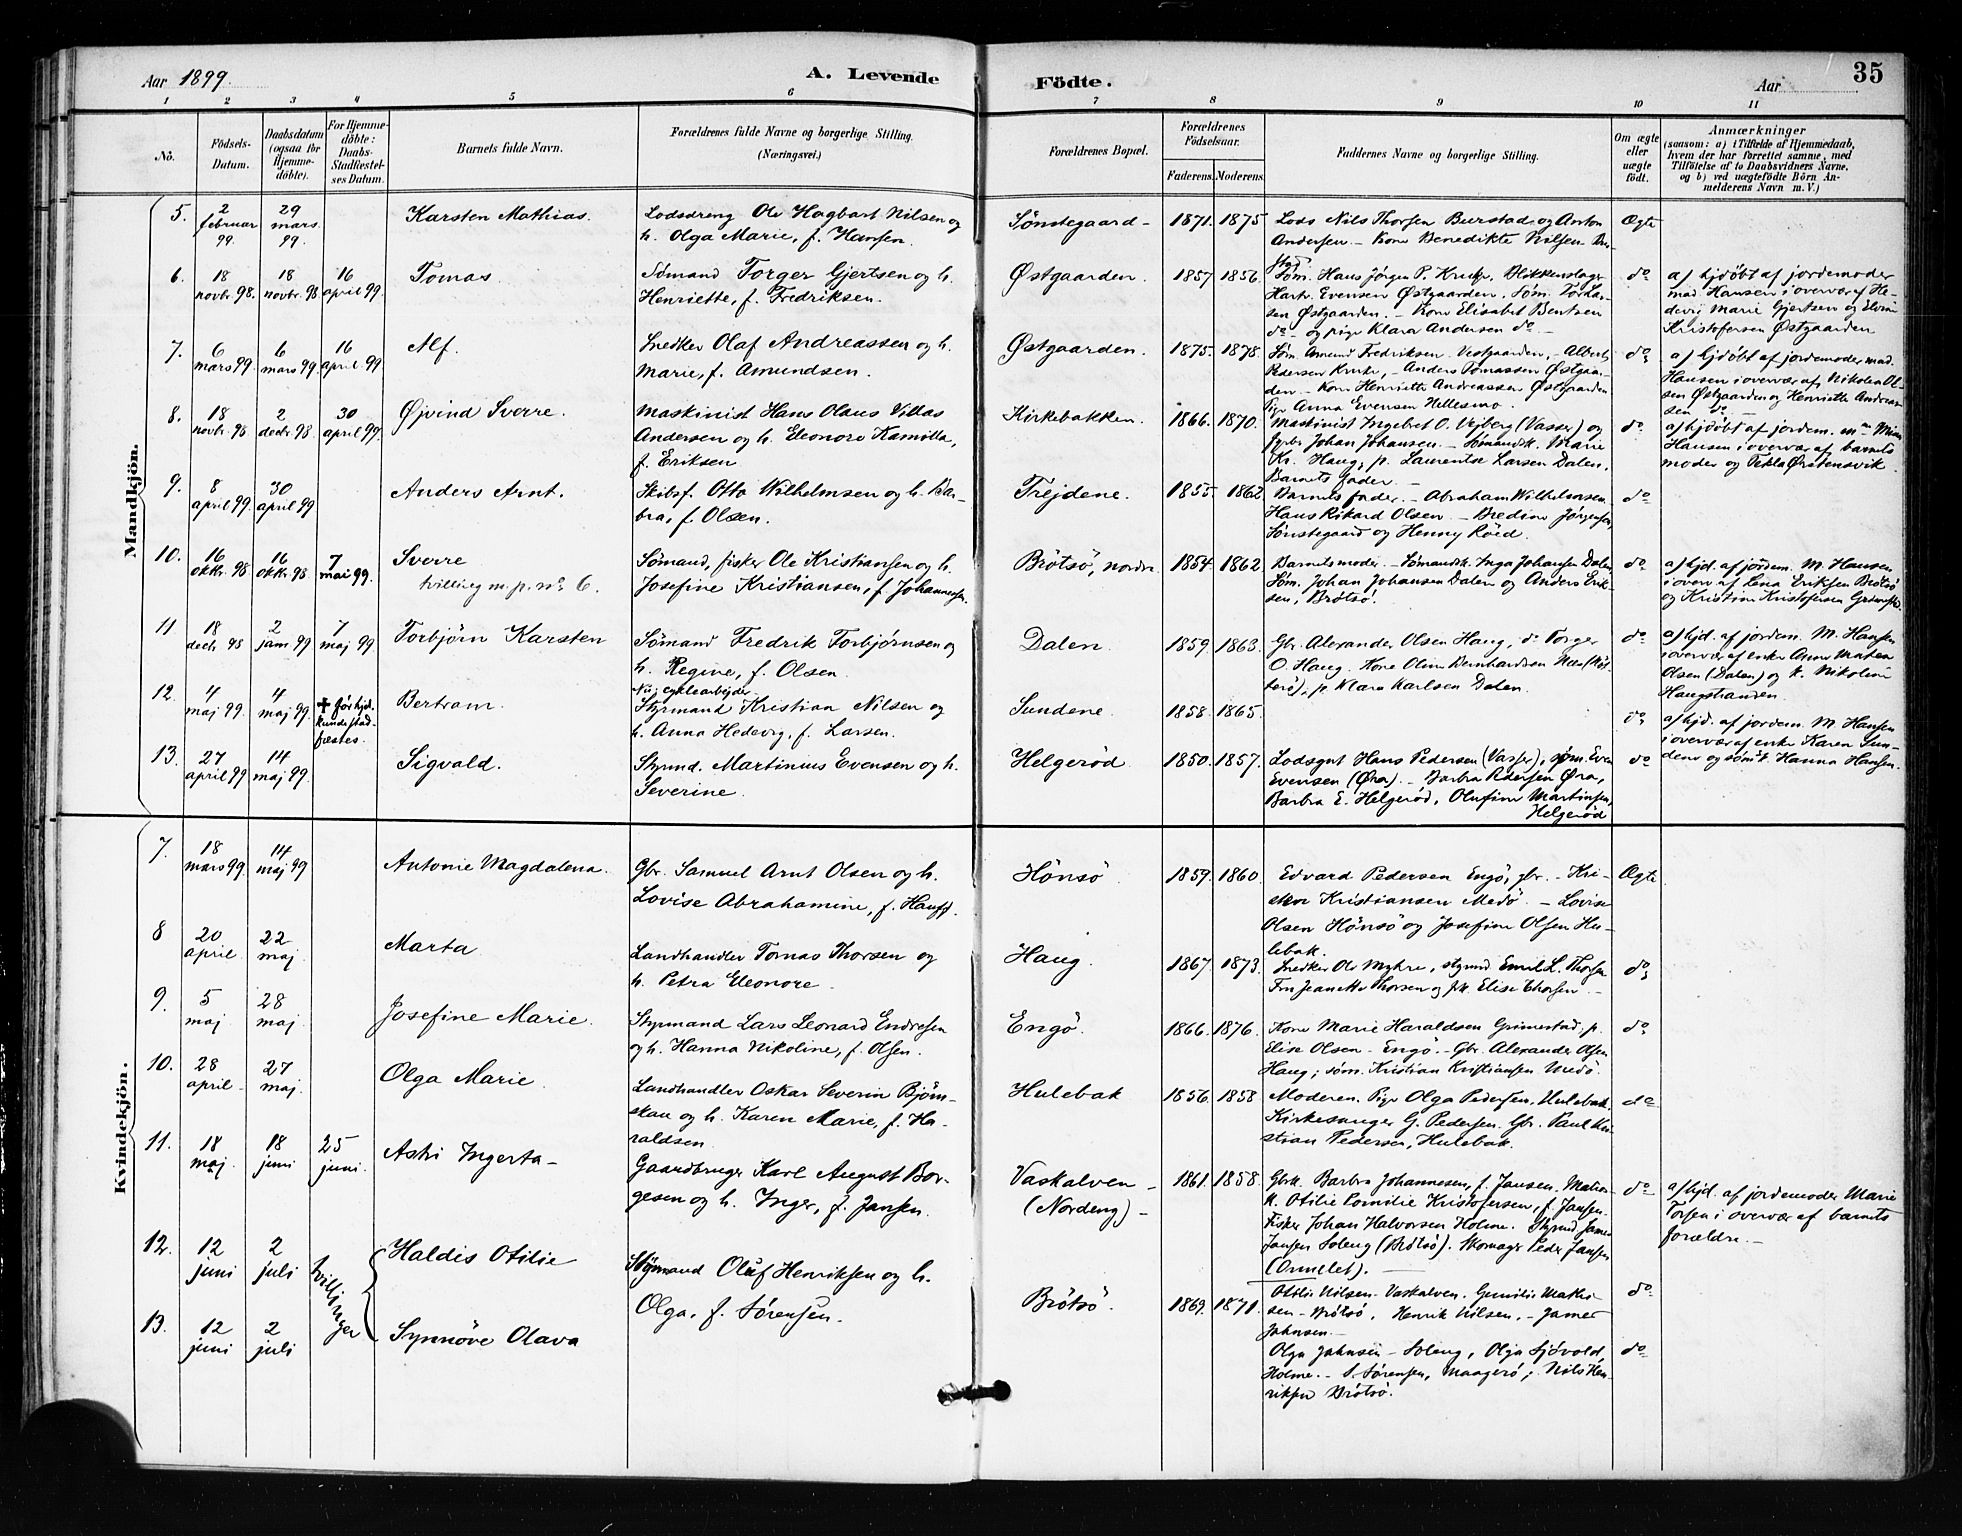 Aar 1899.
A. Levende
Födte.
Aar
35
1 2 3 4 5 6 7 8 9 10 11
No.
Födsels-Datum.
Daabsdatum (ogsaa for Hjemme-döbte).
For Hjemme-döbte: Daabs-Stadfæstel-ses Datum.
Barnets fulde Navn.
Forældrenes fulde Navne og borgerlige Stilling.
(Næringsvei.)
Forældrenes Bopæl.
Forældrenes Födselsaar.
Faderens. Moderens.
Faddernes Navne og borgerlige Stilling.
Om ægte eller uægte födt.
Anmærkninger
(saasom: a) i Tilfælde af Hjemmedaab,
hvem der har forrettet samme, med
Tilföielse af to Daabsvidners Navne.
og b) ved uægtefödte Börn An-
melderens Navn m. V.)
Mandkjön.
5. 2 februar 99. 29 mars 99. Karsten Mathias.
Lodsdreng Ole Hagbart Nilsen og
h. Olga Marie, f. Hansen.
Sønstegaard - 1871. 1875
Lods Nils Thorsen Burstad og Anton
Andersen. - Kone Benedikte Nilsen Bur-
stad
Ægte
6. 18 novbr. 98. 18 novbr. 98 16 april 99. Tomas
Sømand Torger Gjertsen og h.
Henriette, f. Fredriksen.
Østgaarden. 1857 1856.
Søm. Hans Jörgen P. Kruke, Blikkenslager
Hartv. Evensen Østgaarden. Søm. Tor Lar-
sen Østgaarden. - Kone Elisabet Bentsen
do - og pige Klara Andersen do. -
do
a) hjdøbt af jordemoder
mad. Hansen i overvær af He-
devig Marie Gjertsen og Elvin
Kristofersen Østgaarden
7. 6 mars 99. 6 mars 99. 16 april 99. Alf.
Snedker Olaf Andreassen og h.
Marie, f. Amundsen.
Østgaarden. 1875. 1878.
Søm. Amund Fredriksen Vestgaarden, - Albert
Pedersen Kruke, - Anders Tomassen Østgaar-
den - Kone Henriette Andreassen Østgaarden
Pige Anna Evensen Hellesmo.
do
a) hjdøbt af jordemoder mad.
Hansen i overvær af Nikolea Ol-
sen Østgaarden og Henriette Andreas-
sen do. -
8. 18 novbr. 98 2 decbr. 98 30 april 99. Øjvind Sverre.
Maskinist Hans Olaus Villas
Andersen og h. Eleonore Kamilla,
f. Eriksen
Kirkebakken. 1866. 1870.
Maskinist Ingebret O. Vejberg (Vasser) og
Johan Johansen. - Sømandsk. Marie
Kr. Haug, p. Laurentse Larsen Dalen,
Barnets fader. -
do
a) hjdøbt af jordem. Mina
Hansen i overvær af barnets
moder og Tekla Ørstensvik.
9. 8 april 99. 30 april 99 Anders Arnt.
Skibsf. Otto Wilhelmsen og h. Bar-
bra, f. Olsen.
Trejdene. 1855. 1862
Barnets fader. - Abraham Wilhelmsen
Hans Rikard Olsen - Bredine Jørgensen,
Sønstegaard og Henny Røed.
do
10. 16 oktbr. 98 16 oktbr. 98 7 mai 99. Sverre
tvilling m. p. no 6.
Sömand, fisker Ole Kristiansen og h.
Josefine Kristiansen, f. Johannessen.
Brötsö, nordre 1854. 1862
Barnets moder. - Sömandsk. Inga Johansen Dalen
Søm. Johan Johansen Dalen og Anders Erik-
sen, Brötsö.
do
a) hjd. af jordem. M. Hansen
i overv. af Lena Eriksen Brötsö
og Kristine Kristofersen Grimestad
11 18 decbr. 98 2 janr 99 7 maj 99 Torbjörn Karsten
Sömand Fredrik Torbjörnsen og
h. Regine, f. Olsen.
Dalen. 1859. 1863.
Gbr. Alexander Olsen Haug, do Torger
O. Haug. Kone Oline Bernhardsen Næs (Nöt-
terö), p. Klara Karlsen Dalen.
do
a) hjd. af jordem. M. Hansen
i overvær af enke Anne Matea
Olsen (Dalen) og k. Nikoline
Haugstranden.
12. 4 maj 99. 4 maj 99. ✝ før hjd. kunde stad-fæstes. Bertram.
Nu: cyklearbejder
Styrmand Kristian Nilsen og
h. Anna Hedevig, f. Larsen.
Sundene. 1858. 1865.
do
a) hjd. af jordem. M. Hansen
i overvær af enke Karen Sun-
dene og søm.k. Hanna Hansen.
13. 27 april 99 14 maj 99. Sigvald.
Styrmd. Martinius Evensen og h.
Severine.
Helgeröd. 1850. 1857.
Lodsgut Hans Pedersen (Vasser), søm. Even
Evensen (Øra). - Barbra Pedersen Øra,
Barbra E. Helgeröd, Olufine Martinsen,
Helgeröd
do
Kvindekjön.
7. 18 mars 99. 14 maj 99 Antonie Magdalena.
Gbr. Samuel Arnt Olsen og h.
Lovise Abrahamine, f. Hauff.
Hönsö. 1859. 1860.
Edvard Pedersen Engö, gbr. - Kri-
stian Kristiansen Medö. - Lovise
Olsen Hönsö og Josefine Olsen Hu-
lebak.
Ægte
8 20 april. 22 maj. Marta.
Landhandler Tomas Thorsen og
h. Petra Eleonore.
Haug. 1867. 1873.
Snedker Ole Myhre, styrmd Emil L. Thorsen
Fru Jeanette Thorsen og frk. Elise Thorsen. -
do
9. 5 maj. 28 maj. Josefine Marie.
Styrmand Lars Leonard Endresen
og h. Hanna Nikoline, f. Olsen.
Engö. 1866. 1876.
Kone Marie Haraldsen Grimestad, p.
Elise Olsen - Engö. - Gbr. Alexander Olsen
Haug; søm. Kristian Kristiansen Medö.
do
10. 28 april - 27 maj. Olga Marie.
Landhandler Oskar Severin Björn-
skau og h. Karen Marie, f. Ha-
raldsen.
Hulebak 1856. 1858
Moderen. Pige Olga Pedersen, Hulebak.
Kirkesanger G. Pedersen. Gbr. Paul Kri-
stian Pedersen, Hulebak.
do
11. 18 maj. 18 juni 25 juni. Astri Ingerta -
Gaardbruger Karl August Bor-
gesen og h. Inger, f. Jansen.
Vaskalven -
(Nordeng) -
1861. 1858.
Gbrk. Barbra Johannesen, f. Jansen. Matros-
k. Otilie Pomilie Kristofersen, f. Jansen.
Fisker Johan Halvorsen Holme. Styrmd James
Jansen Soleng (Brötsö). Skomager Peder Jansen
(Ormelet).
do
a) hjd. af jordemoder Marie
Torsen i overvær af barnets
forældre. -
12. 12 juni 2 juli Haldis Otilie
tvillinger
Styrmand Oluf Henriksen og h.
Olga, f. Sørensen.
Brötsö. 1869. 1871.
Otilie Nilsen Vaskalven. Gunilie Mathi-
sen - Brötsö, Henrik Nilsen, - James
Johnsen. -
do
13. 12 juni 2 juli Synnöve Olava
Olga Johnsen - Soleng, Olga Sjövold
Holme. - S. Sørensen, Maagerö; Nils Hen-
riksen Brötsö.
do